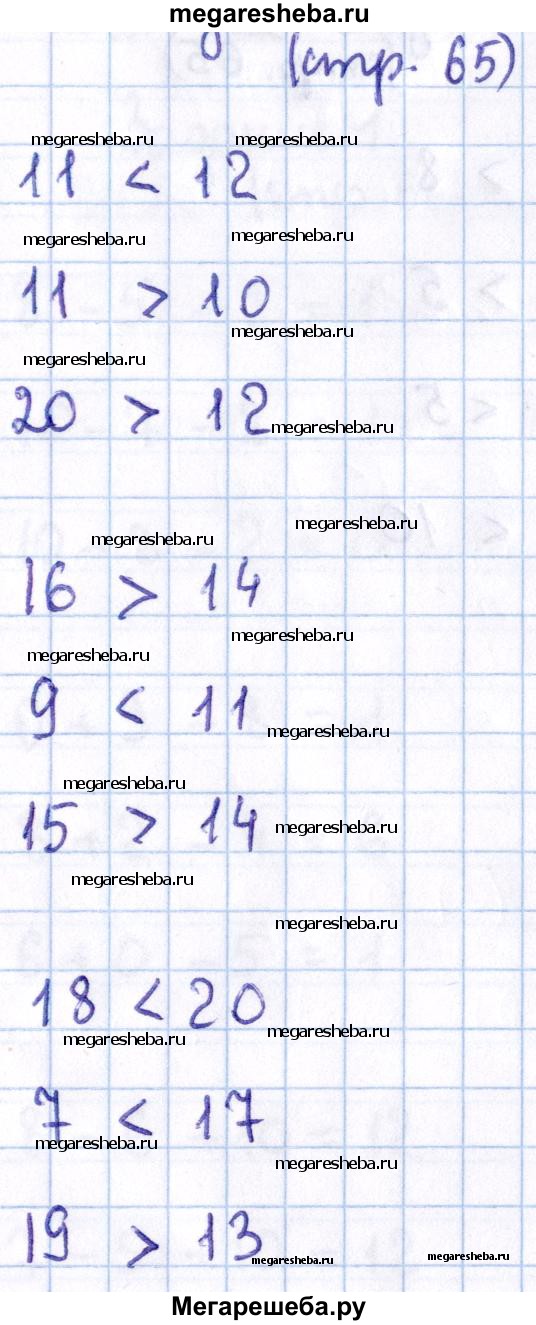 megaresheba.ru
(стр. 65)
megaresheba.ru megaresheba.ru
11 < 12
megaresheba.ru megaresheba.ru
11 > 10
megaresheba.ru megaresheba.ru
20 > 12 megaresheba.ru
megaresheba.ru megaresheba.ru
16 > 14
megaresheba.ru megaresheba.ru
9 < 11 megaresheba.ru
megaresheba.ru
15 > 14 megaresheba.ru
megaresheba.ru
megaresheba.ru
18 < 20
megaresheba.ru megaresheba.ru
7 < 17
megaresheba.ru megaresheba.ru
19 > 13 megaresheba.ru megaresheba.ru
Мегарешеба.ру